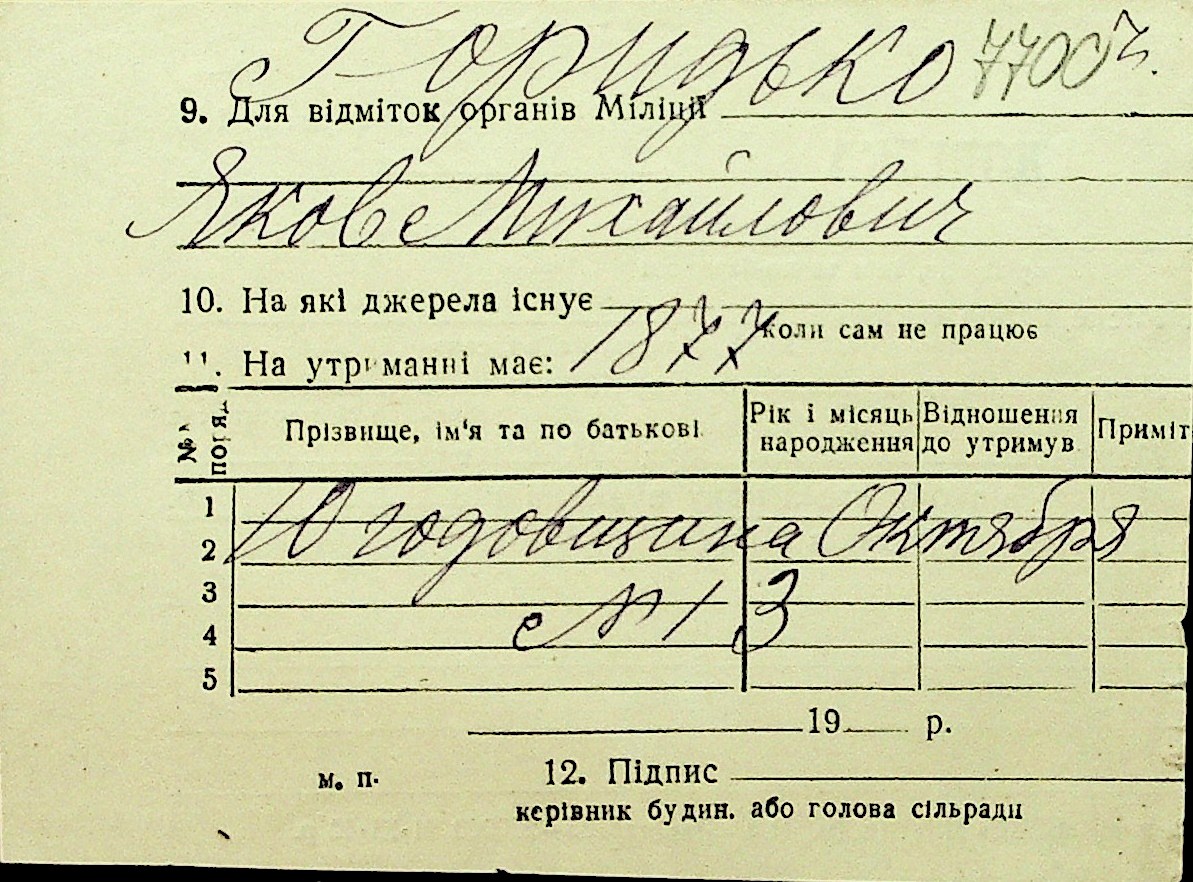 Горидько 7700 г.
9. Для відміток органів Міліції
Яков Михайлович
10. На які джерела існує
коли сам не працює
11. На утриманні має: 1877
№№ поряд. Прізвище, ім'я та по батькові Рік і місяць народження Відношення до утримув Приміт
1
10 годовщина Октября
2
3
№ 13
4
5
19 р.
м. п. 12. Підпис
керівник будин. або голова сільради